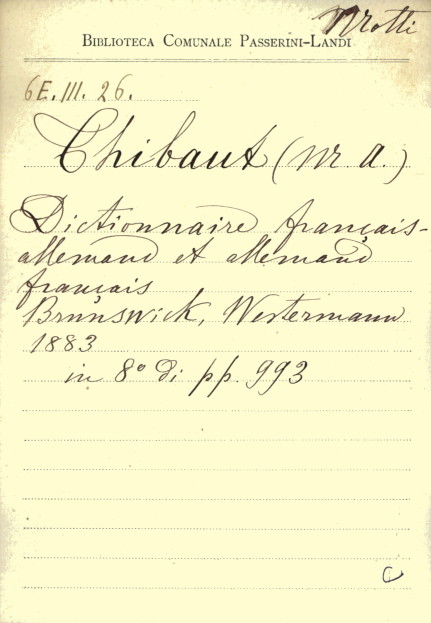 Biblioteca Comunale Passerini-Landi
6E. III. 26.
Thibaut (M. A.)
Dictionnaire français-
allemand et allemand
français
Brunswick, Westermann
1883
in 8° di pp. 993
C